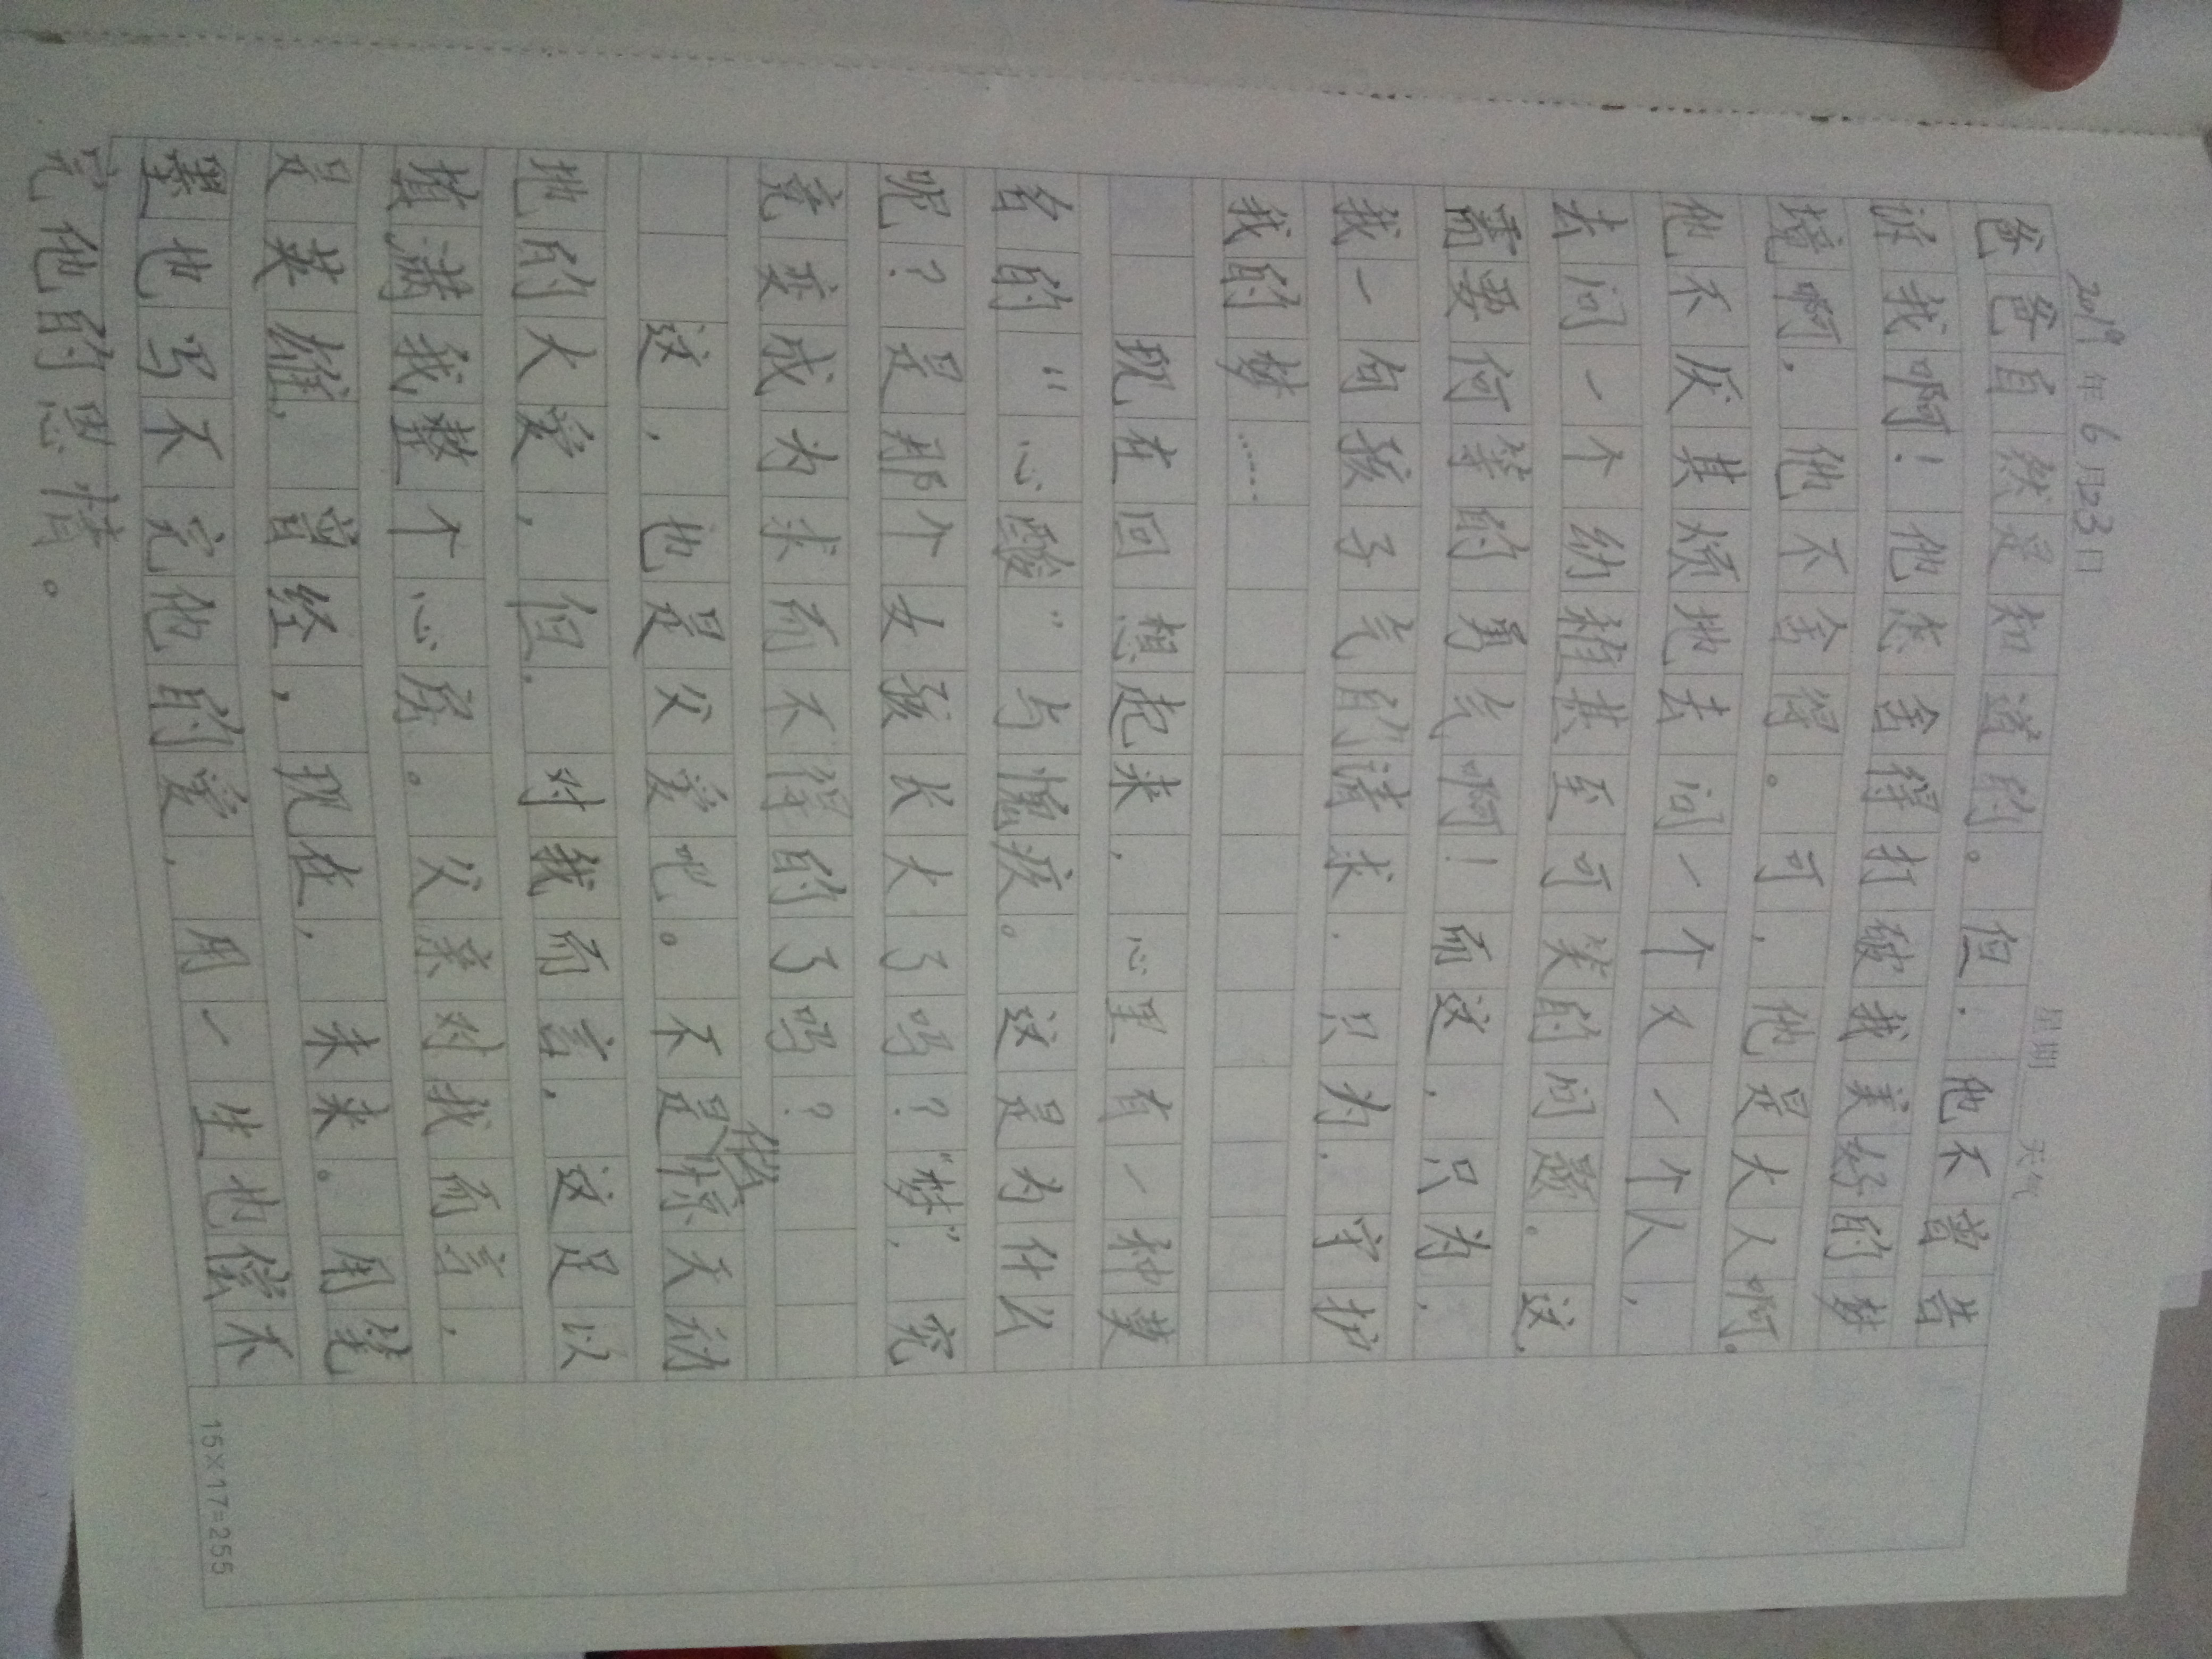 2019年6月23日 星期 天气
爸爸自然是知道的。但,他不曾告
诉我啊!他怎舍得打破我美好的梦
境啊,他不舍得。可,他是大人啊。
他不厌其烦地去问一个又一个人,
去问一个幼稚甚至可笑的问题。这
需要何等的勇气啊!而这,只为,
我一句孩子气的请求,只为,守护
我的梦……
现在回想起来,心里有一种莫
名的“心酸”与愧疚。这是为什么
呢?是那个女孩长大了吗?“梦”,究
竟变成为求而不得的了吗?
这,也是父爱吧。不是什么惊天动
地的大爱,但,对我而言,这足以
填满我整个心房。父亲对我而言,
是英雄,曾经,现在,未来。用笔
墨也写不完他的爱,用一生也偿不
完他的恩情。
15×17=255